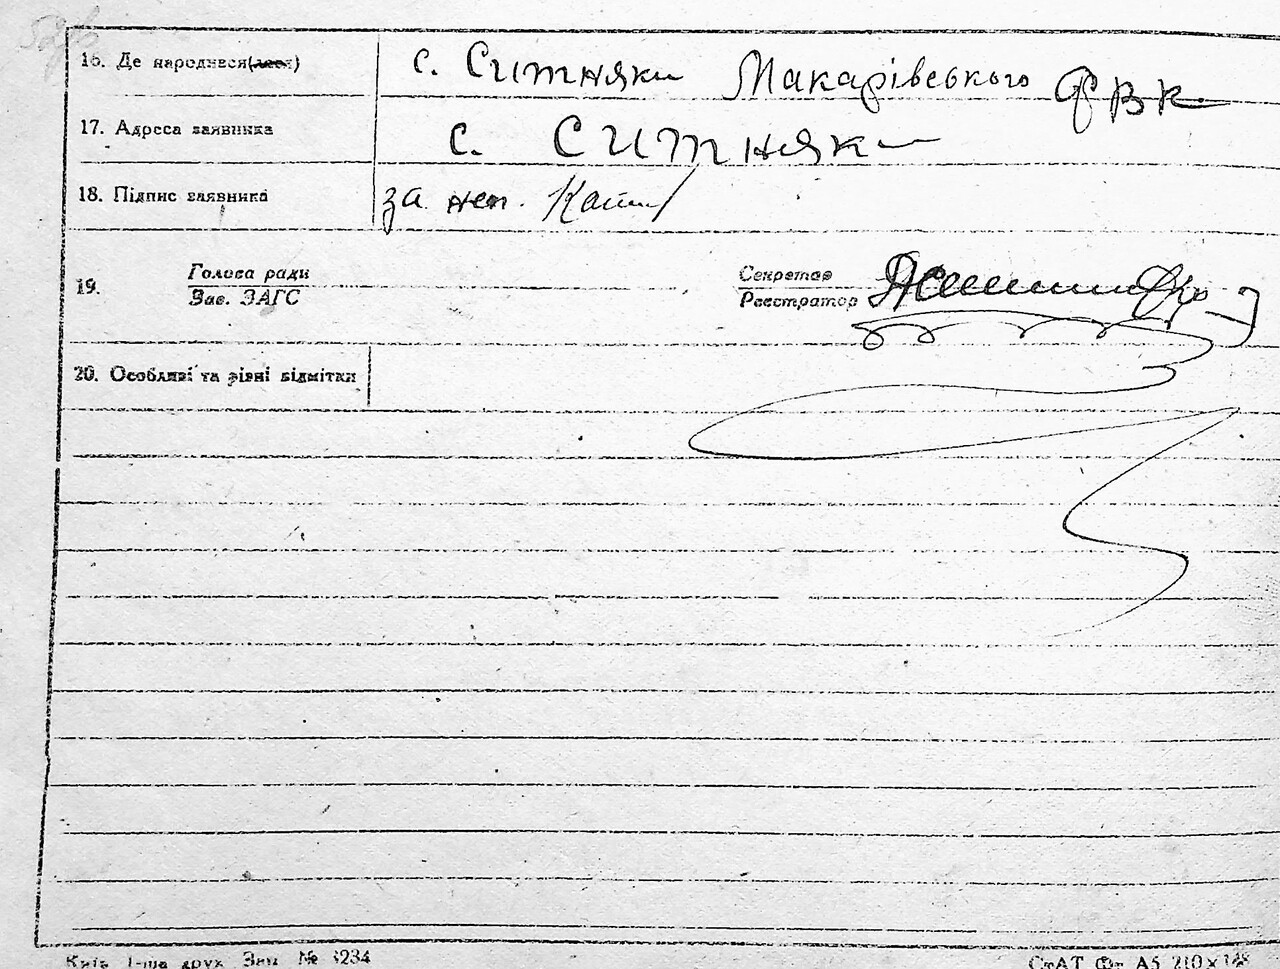 16. Де народився(лася) с. Ситняки Макарівського РВК
17. Адреса заявника с. Ситняки
18. Підпис заявника за неп.
19. Голова ради Секретар
Зав. ЗАГС Реєстратор
20. Особливі та різні відмітки
Київ 1-ша друк. Зам. № 3234 СтАТ Ф. А5 210×148